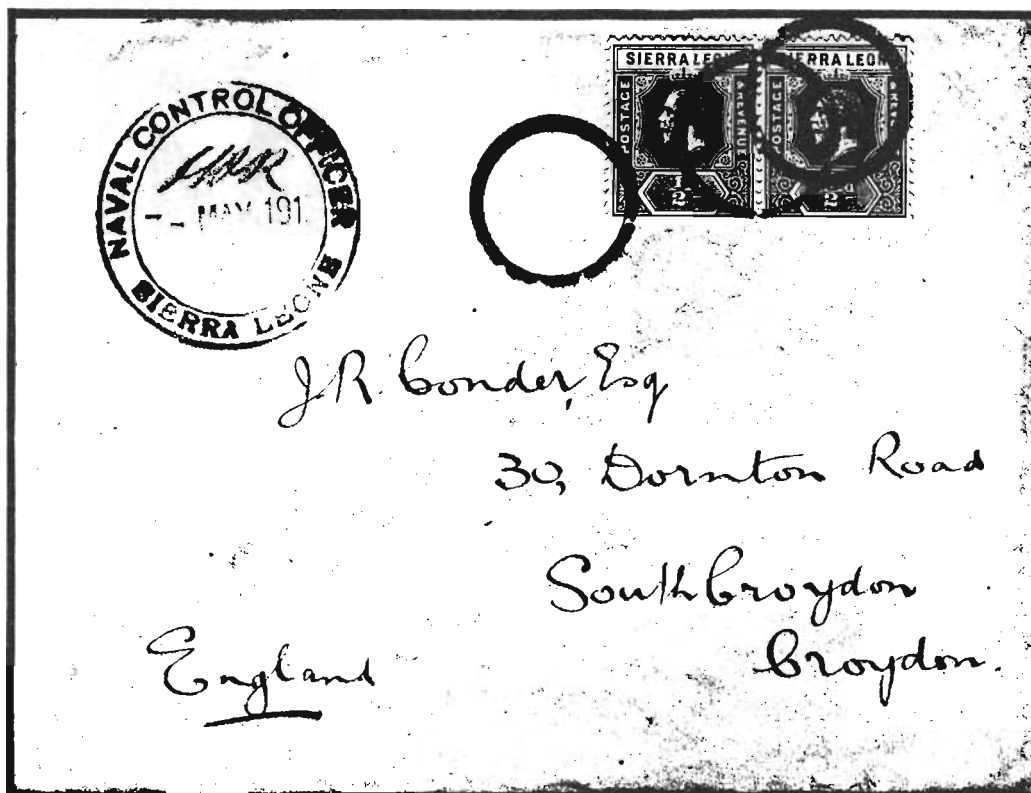 NAVAL CONTROL OFFICER
MAY 191
SIERRA LEONE
SIERRA LEONE
POSTAGE
& REVENUE
1/2
SIERRA LEON
POSTAGE
1/2
J.R. Conder, Esq
30, Dornton Road
South Croydon
Croydon.
England